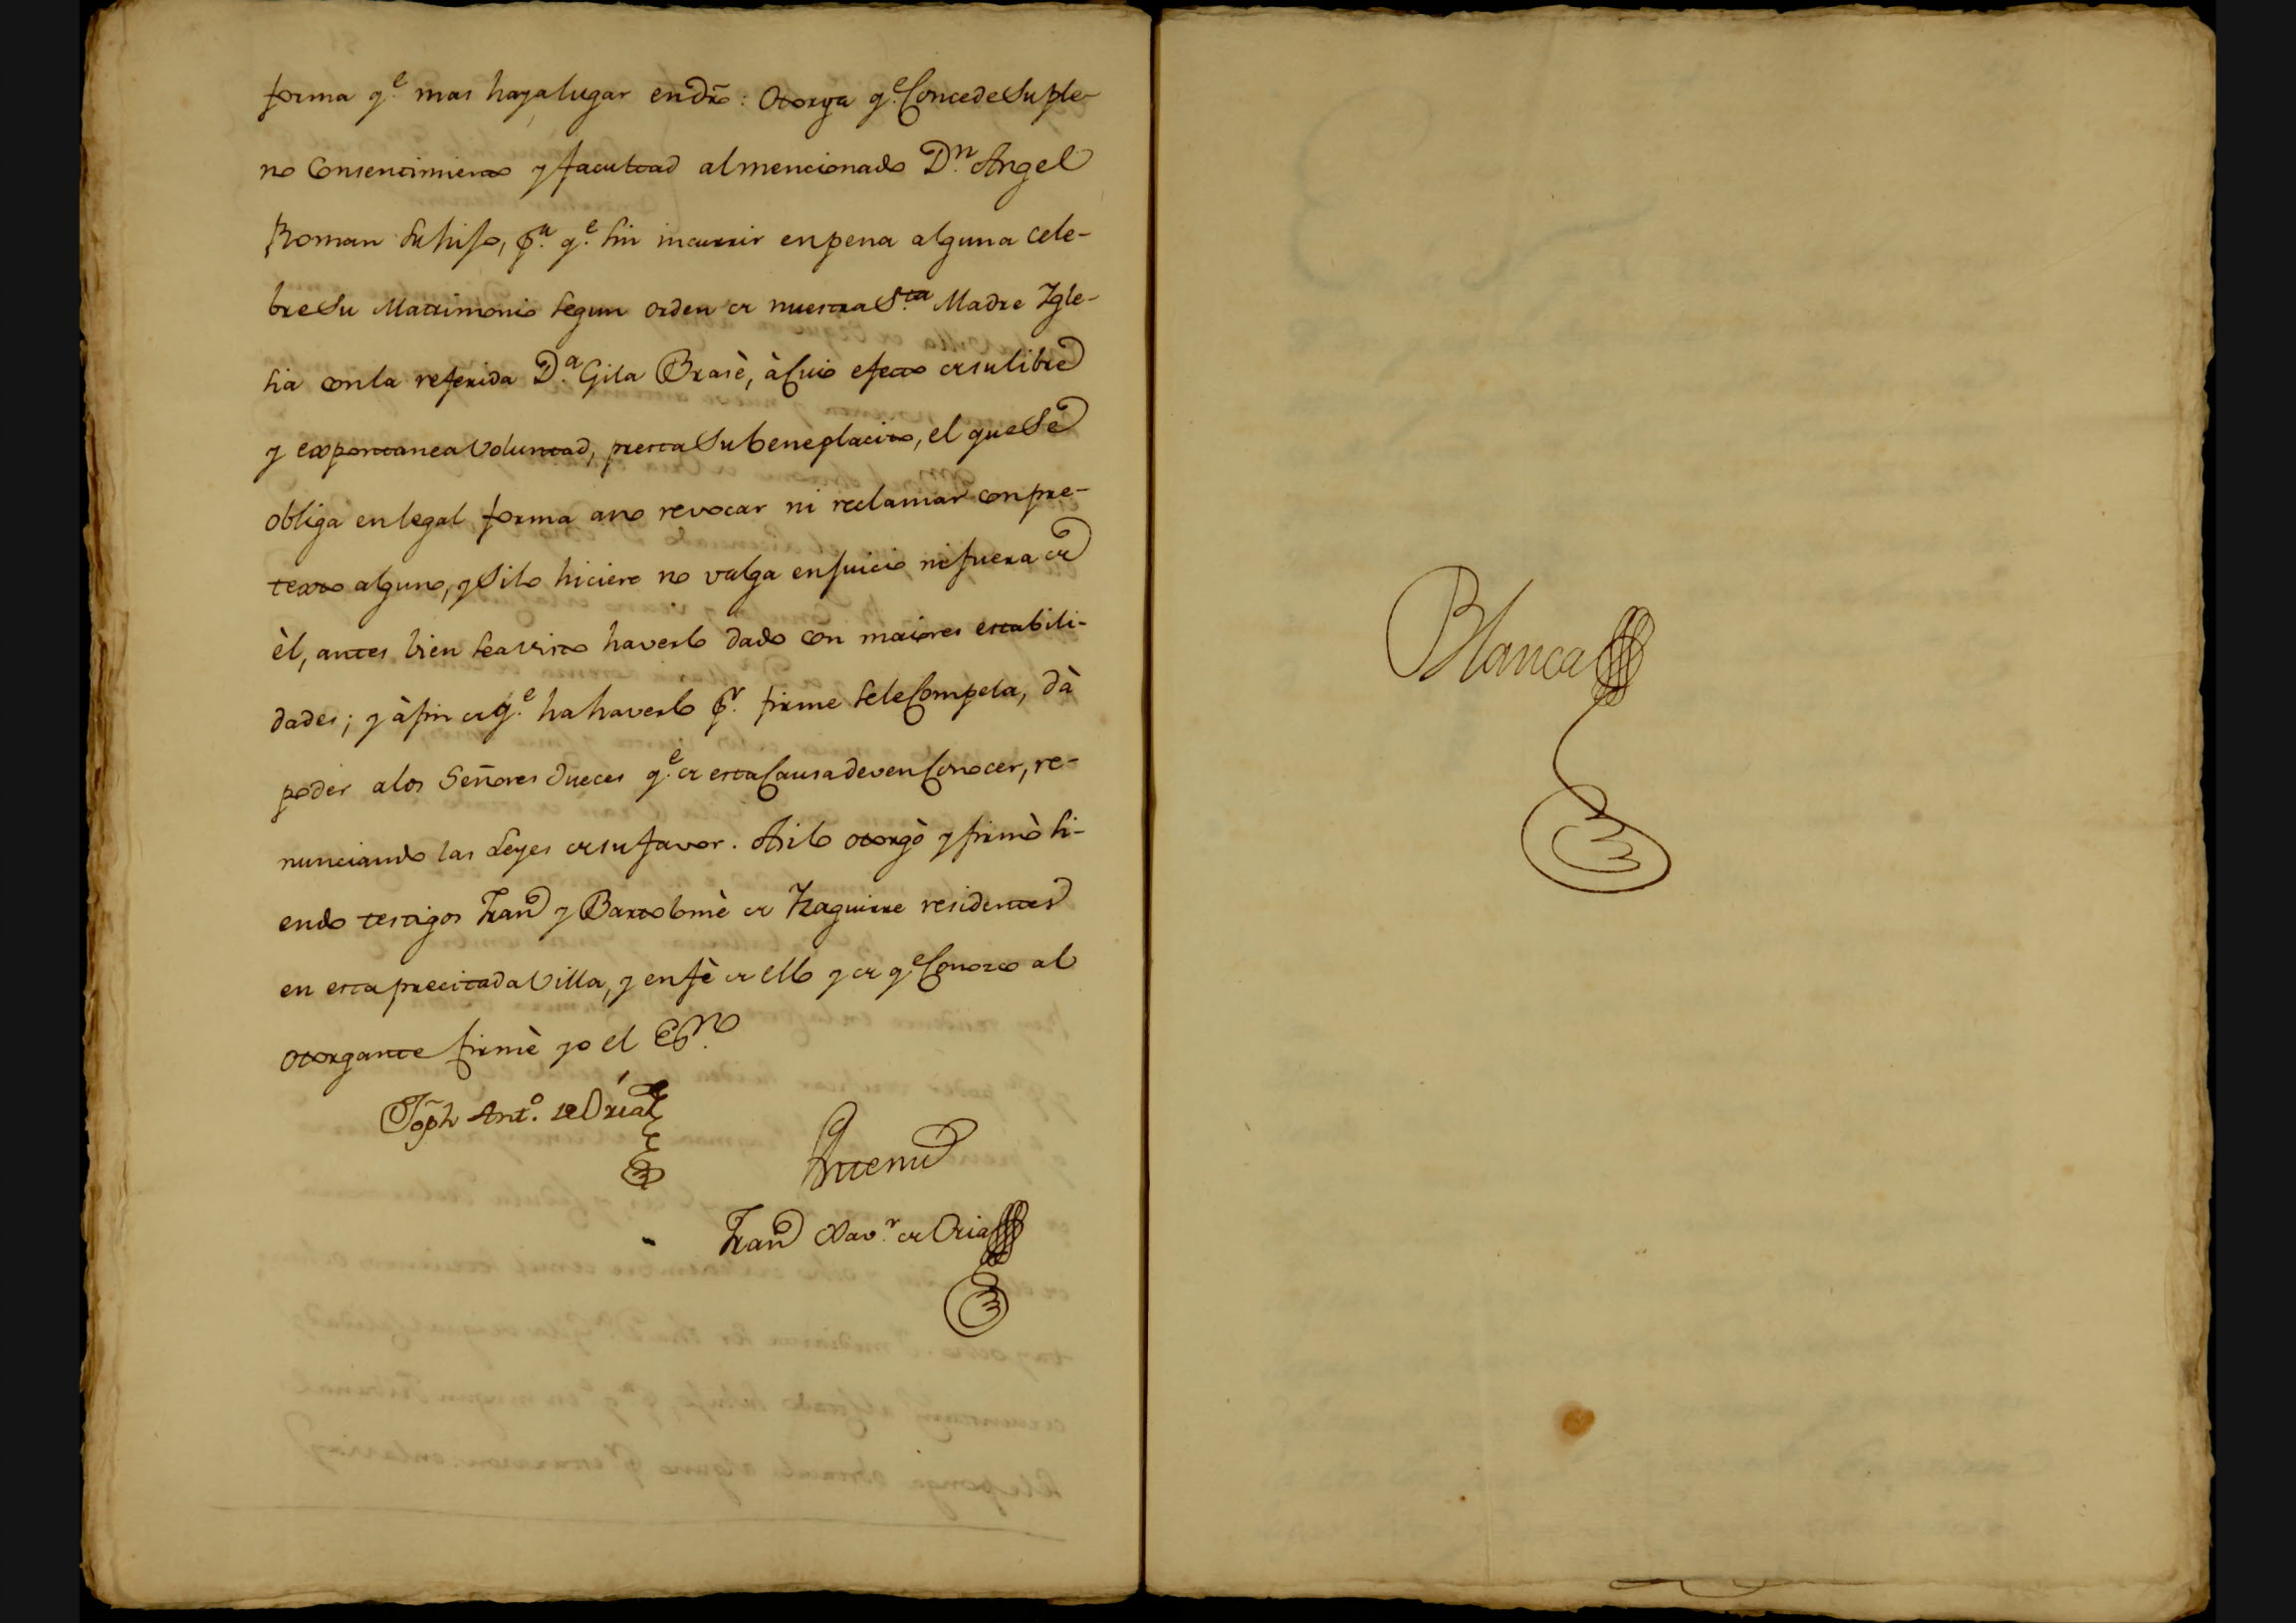 forma q.e mas haya lugar en dro: Otorga q.e Concede Su ple-
no Consentimiento y facultad al mencionado D.n Angel
Roman su hijo, p.a q.e sin incurrir en pena alguna cele-
bre Su Matrimonio segun orden de nuestra S.ta Madre Igle-
sia con la referida D.a Gila Brasè, à Cuio efecto de su libre
y expontanea Voluntad, presta Su beneplacito, el que Se
obliga en legal forma a no revocar ni reclamar con pre-
texto alguno, y Si lo hiciere no valga en juicio ni fuera de
èl, antes bien sea visto haverlo dado con maiores estabili-
dades; y à fin de q.e ha haverlo p.r firme se le Compela, dà
poder a los Señores Jueces q.e de esta Causa deven Conocer, re-
nunciando las Leyes de su favor. Asi lo otorgò y firmò si-
endo testigos Fran.co y Bartolomè de Yzaguirre residentes
en esta precitada Villa, y en fè de ello y de q.e Conozco al
otorgante firmè yo el Ess.no
Joph Ant.o de Oria
Antemi
Fran.co Xav.r de Oria
Blanca